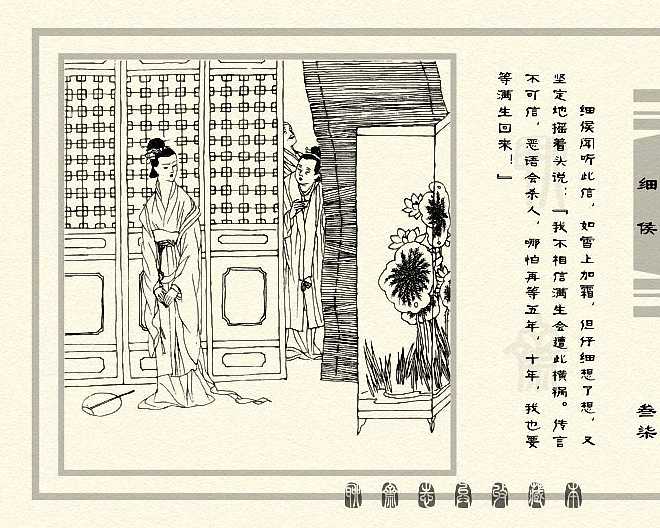 细侯闻听此信，如雪上加霜，但仔细想了想，又
坚定地摇着头说：『我不相信满生会遭此横祸。传言
不可信，恶语会杀人，哪怕再等五年，十年，我也要
等满生回来！』
细侯
叁柒